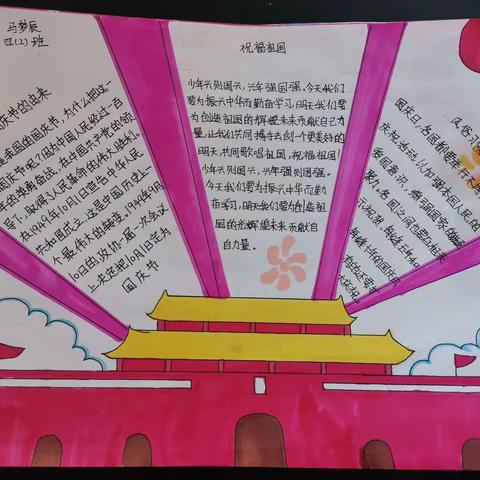 马梦辰
四(2)班
庆节的由来
是我国的国庆节,为什么把这一
国庆节呢?因为中国人民经过一百
年的英勇奋战,在中国共产党的领
导下,取得了人民革命的伟大胜利。
在1949年10月1日宣告中华人民
共和国成立,这是中国历史上一
个最伟大的转变。1949年9月
的政协一届一次会议
上决定把10月1日定为
国庆节
祝福祖国
少年兴则国兴,少年强国强。今天我们
要为振兴中华而勤奋学习,明天我们要
为创造祖国的辉煌未来贡献自己力
量,让我们共同携手去创一个更美好的
明天,共同歌唱祖国,祝福祖国!
少年兴则国兴,少年强则国强。
今天我们要为振兴中华而勤
奋学习,明天我们要为创造祖
国的光辉煌未来贡献自
自力量。
风俗习
国庆日,各国都要举行不同
庆祝活动,以加强本国人民的
爱国意识,增强国家的
聚力。各国之间也要互相表
示祝贺。